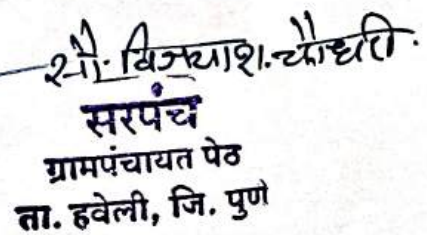 सौ. विजया श. चौधरी.
सरपंच
ग्रामपंचायत पेठ
ता. हवेली, जि. पुणे